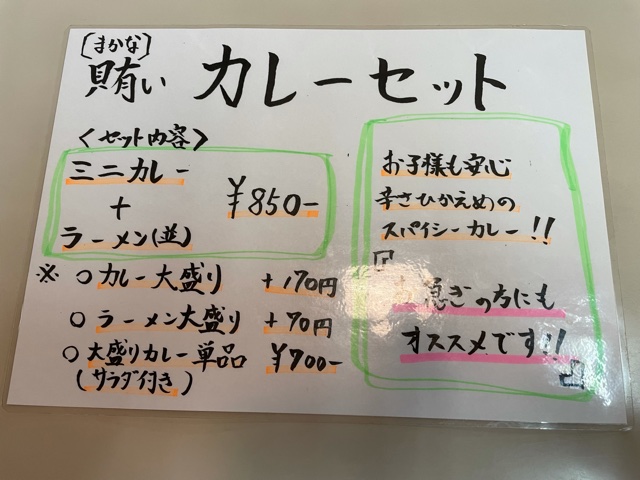 [まかな]
賄い カレーセット
<セット内容>
ミニカレー
+
ラーメン(並)
¥850-
※ ○ カレー大盛り +170円
○ ラーメン大盛り +70円
○ 大盛りカレー単品 ¥700-
(サラダ付き)
お子様も安心
辛さひかえめの
スパイシーカレー!!
急ぎの方にも
オススメです!!